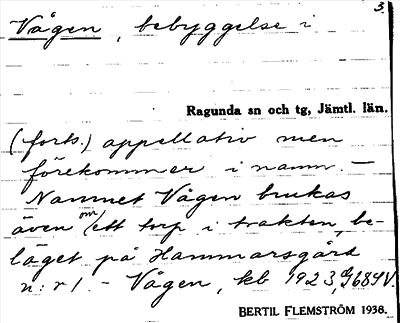 3.
Vågen, bebyggelse i
Ragunda sn och tg, Jämtl. län.
(forts.) appellativ men
förekommer i namn. —
Namnet Vågen brukas
även om ett torp i trakten, be-
läget på Hammarsgård
n:r 1. – Vågen, kb 1923, G684V.
BERTIL FLEMSTRÖM 1938.